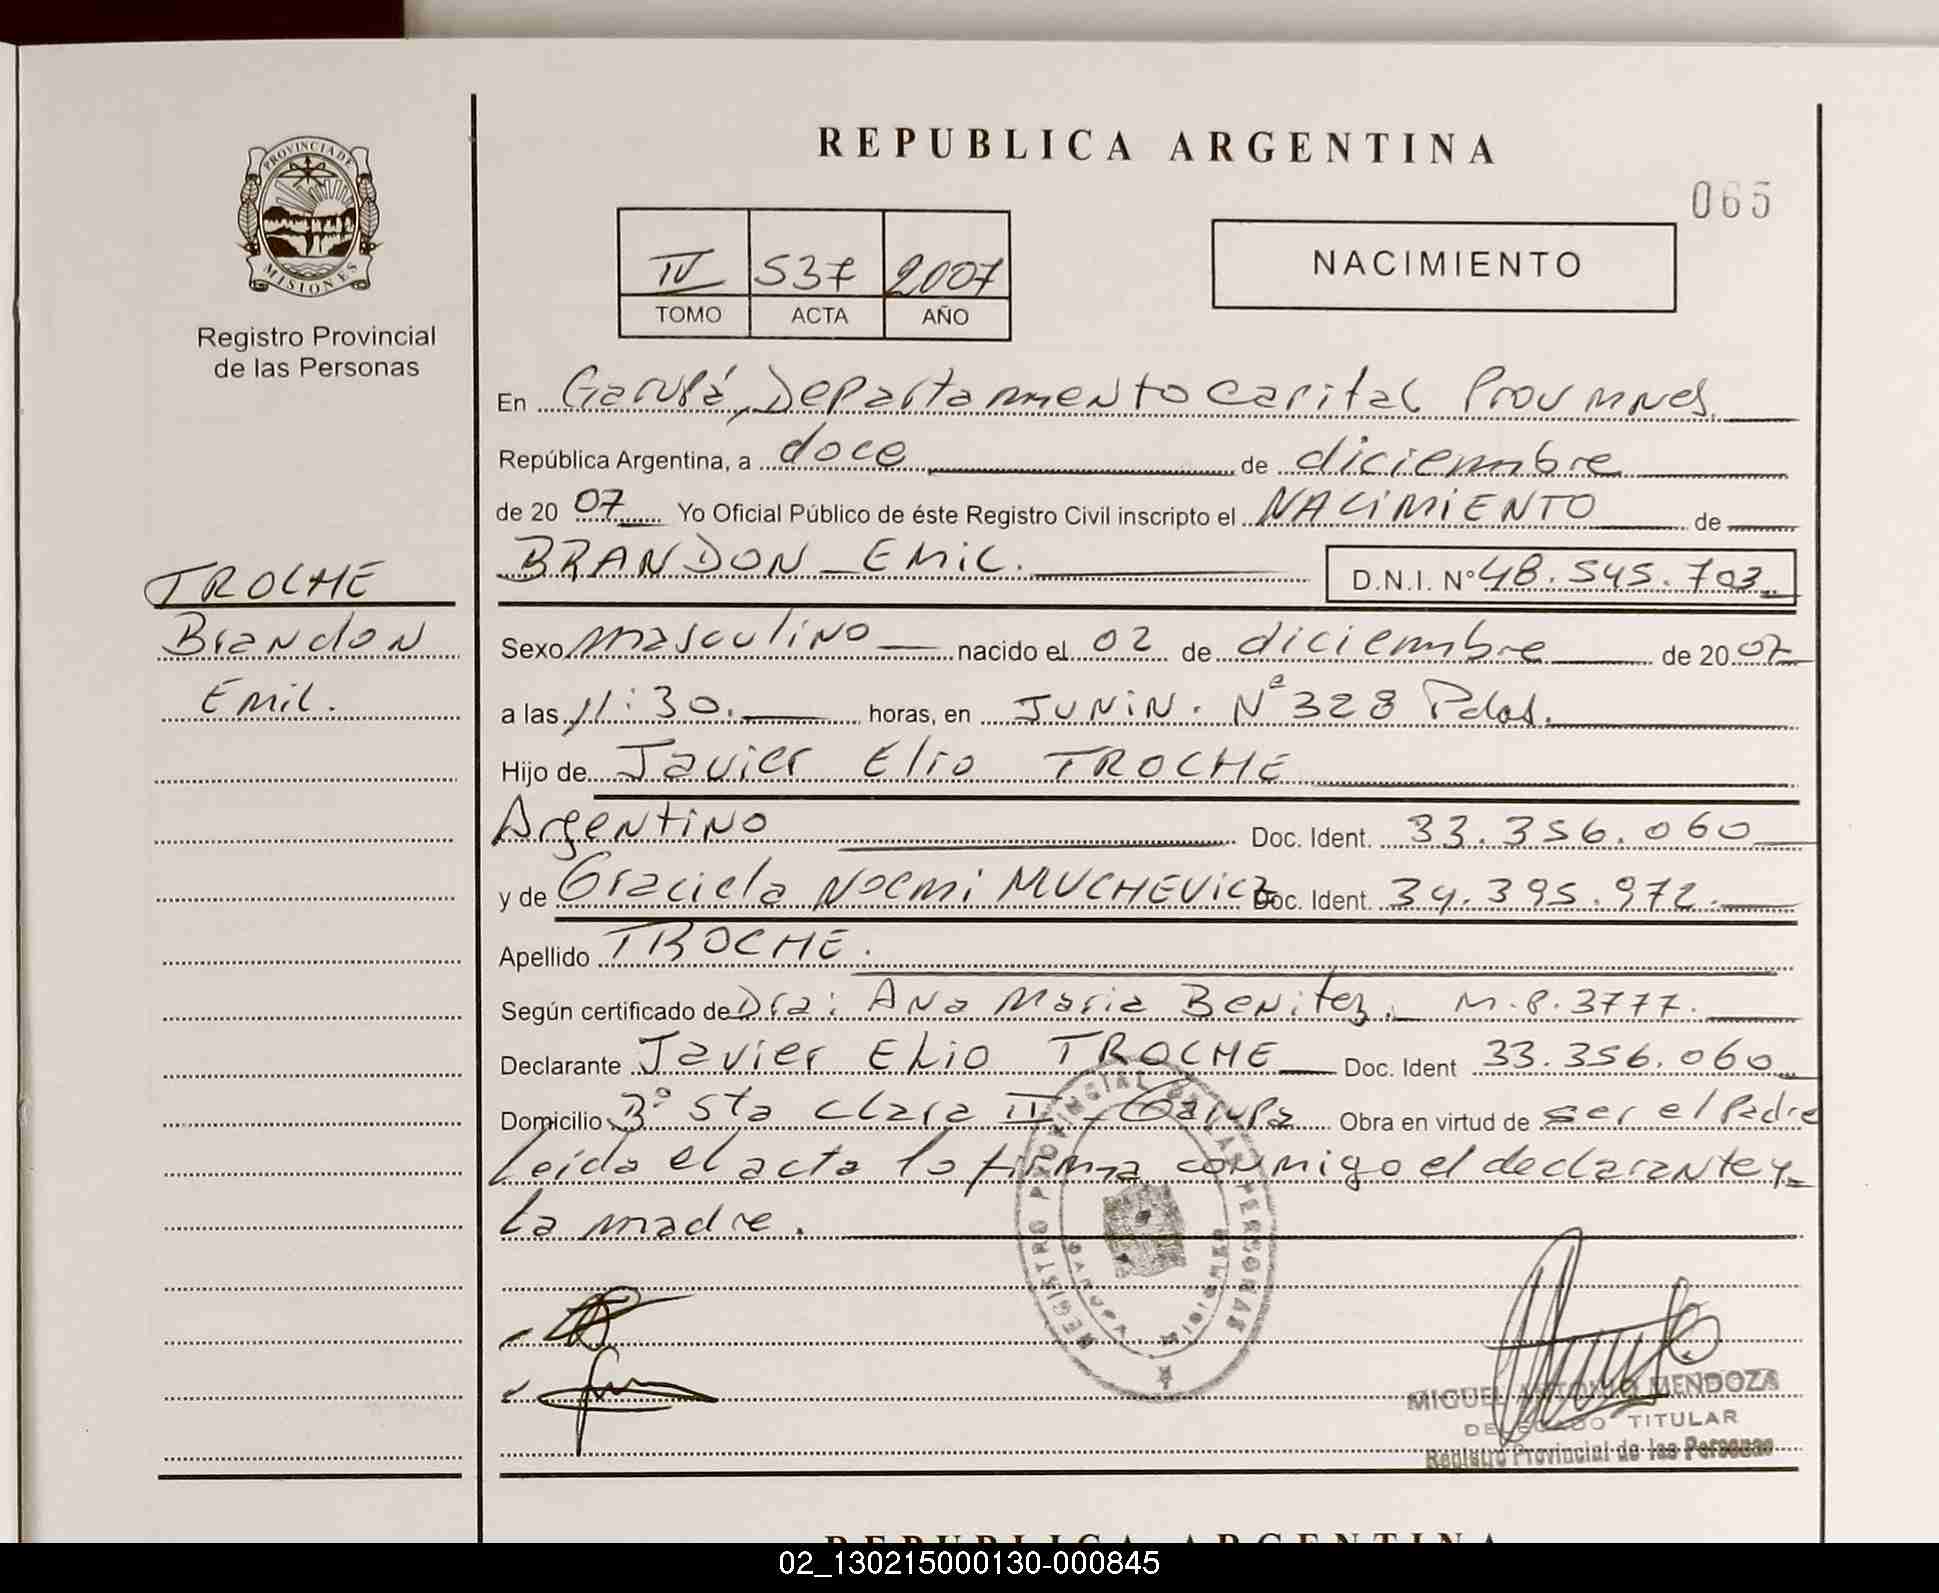 PROVINCIA DE
MISIONES
Registro Provincial
de las Personas
TROCHE
Brandon
Emil.
REPUBLICA ARGENTINA
065
IV 537 2007
TOMO ACTA AÑO
NACIMIENTO
En Garupá, Departamento Capital Prov Mnes.
República Argentina, a doce de diciembre
de 20 07 Yo Oficial Público de éste Registro Civil inscripto el NACIMIENTO de
BRANDON EMIL. D.N.I. N° 48.545.703
Sexo masculino nacido el 02 de diciembre de 20 07
a las 11:30. horas, en JUNIN. Nº 328 Pdas.
Hijo de Javier Elio TROCHE
Argentino Doc. Ident. 33.356.060
y de Graciela Noemi MUCHEVICZ Doc. Ident. 34.395.972.
Apellido TROCHE.
Según certificado de Dra: Ana Maria Benitez. M.P.3777.
Declarante Javier Elio TROCHE Doc. Ident 33.356.060
Domicilio Bº Sta Clara II - Garupa Obra en virtud de ser el Padre
Leída el acta lo firma conmigo el declarante y
la madre.
REGISTRO PROVINCIAL DE LAS PERSONAS
MIGUEL ANTONIO MENDOZA
DELEGADO TITULAR
Registro Provincial de las Personas
REPUBLICA ARGENTINA
02_130215000130-000845